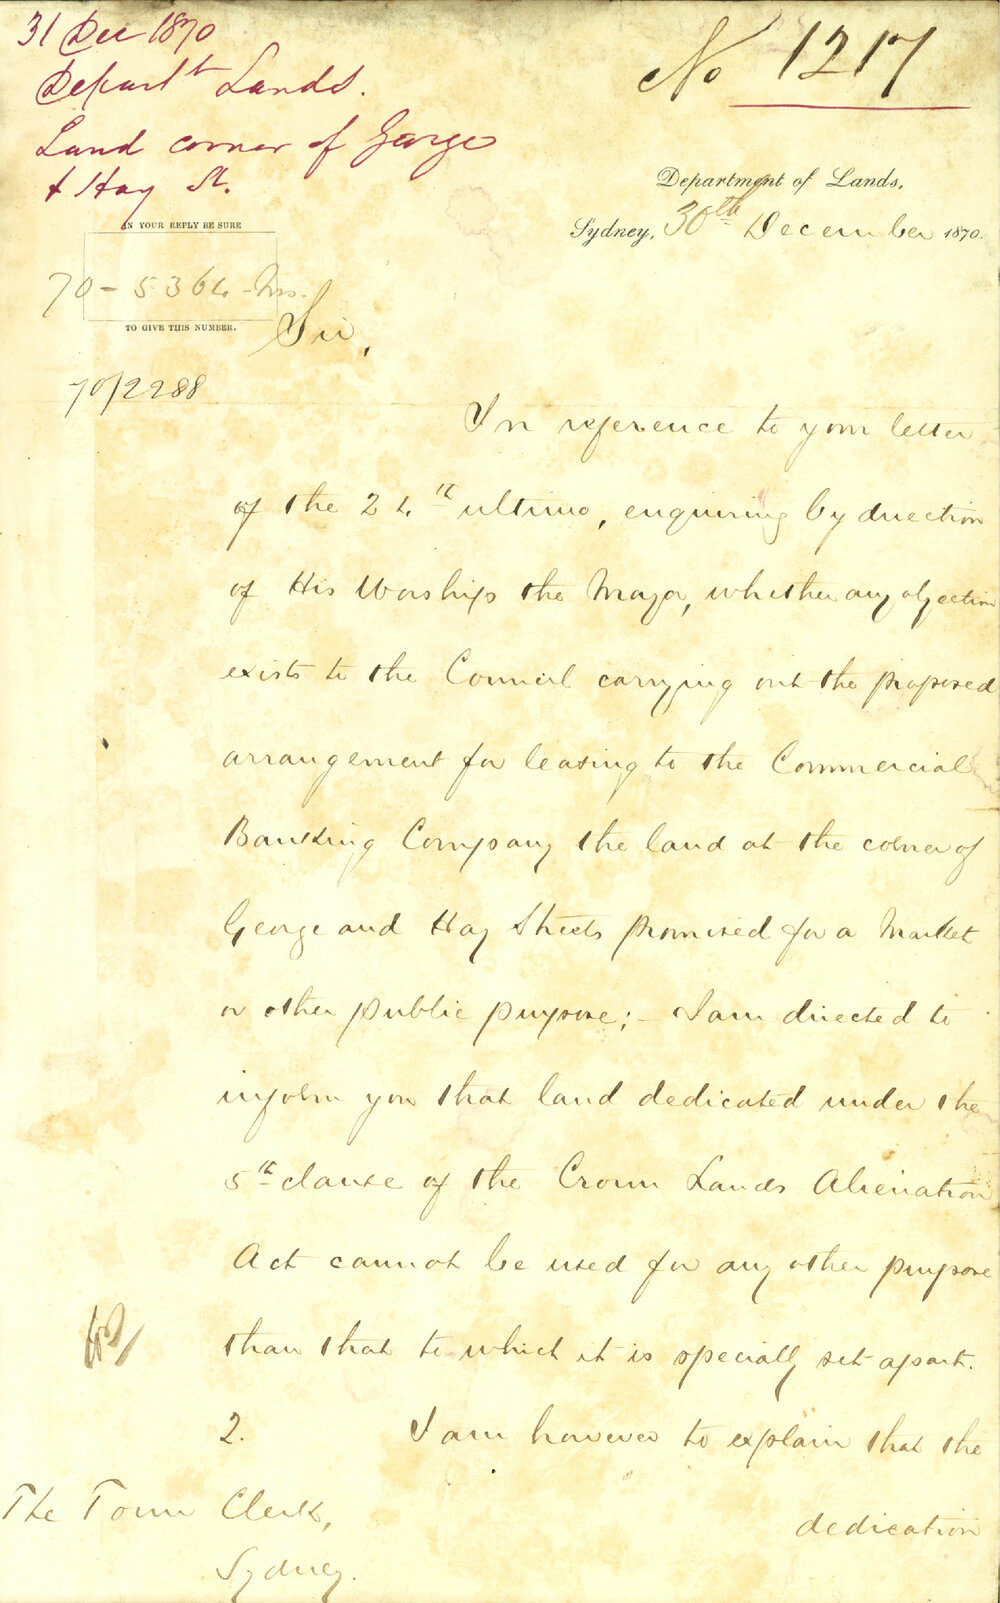 31 Dec 1870
Departt Lands.
Land corner of George
& Hay St.
No 1217
Department of Lands,
Sydney, 30th December 1870.
IN YOUR REPLY BE SURE
70-5364-Mis.
TO GIVE THIS NUMBER.
70/2288
Sir,
In reference to your letter
of the 24th ultimo, enquiring by direction
of His Worship the Mayor, whether any objection
exists to the Council carrying out the proposed
arrangement for leasing to the Commercial
Banking Company the land at the corner of
George and Hay Streets promised for a Market
or other public purpose; - I am directed to
inform you that land dedicated under the
5th clause of the Crown Lands Alienation
Act cannot be used for any other purpose
than that to which it is specially set apart.
2. I am however to explain that the
dedication
The Town Clerk,
Sydney.